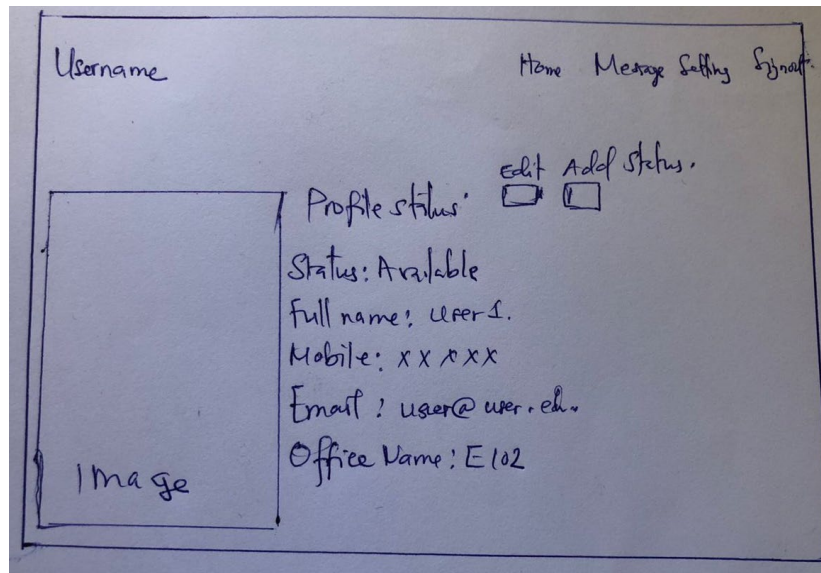 Username Home Message Setting Signout
Edit Add Status.
Profile status:
Status: Available
Full name: user 1.
Mobile: x x x x x
Email: user@user.edu.
Office Name: E102
Image